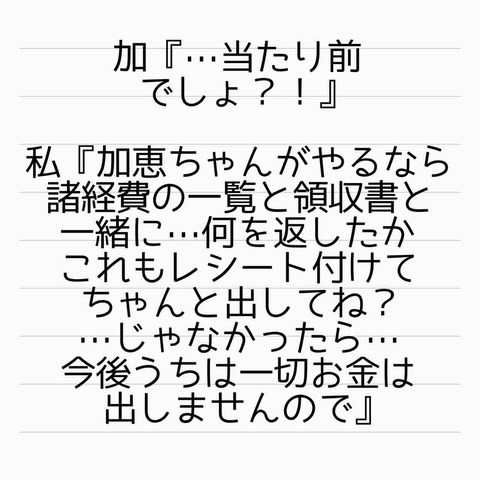 加『…当たり前
でしょ？！』
私『加恵ちゃんがやるなら
諸経費の一覧と領収書と
一緒に…何を返したか
これもレシート付けて
ちゃんと出してね？
…じゃなかったら…
今後うちは一切お金は
出しませんので』